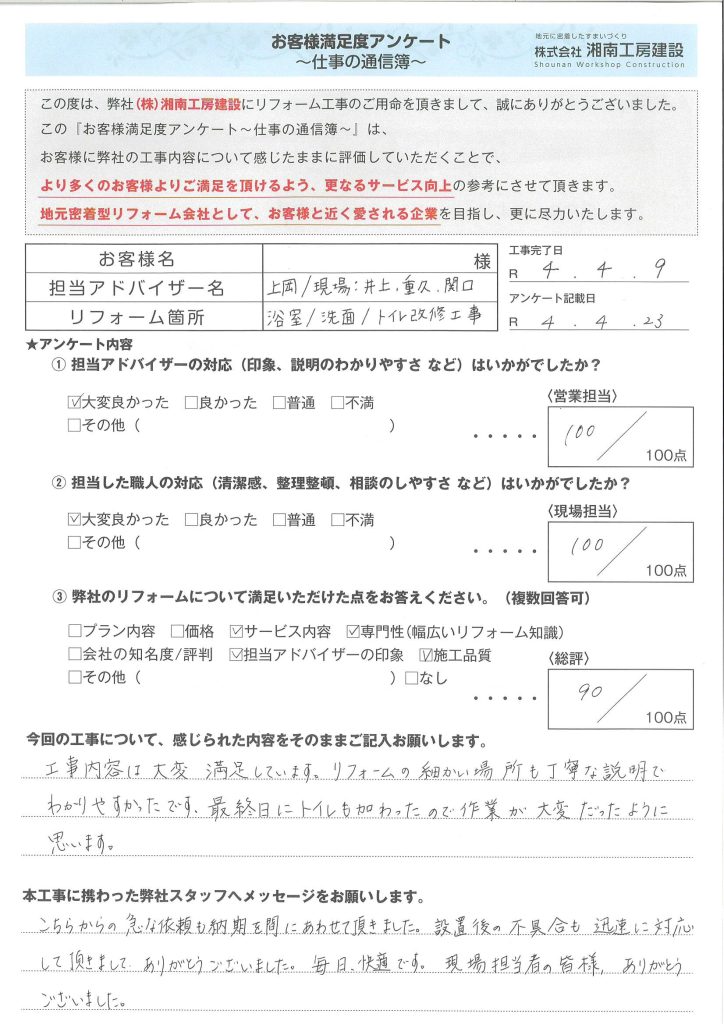 お客様満足度アンケート
～仕事の通信簿～
地元に密着したすまいづくり
株式会社 湘南工房建設
Shounan Workshop Construction
この度は、弊社(株)湘南工房建設にリフォーム工事のご用命を頂きまして、誠にありがとうございました。
この『お客様満足度アンケート～仕事の通信簿～』は、
お客様に弊社の工事内容について感じたままに評価していただくことで、
より多くのお客様よりご満足を頂けるよう、更なるサービス向上の参考にさせて頂きます。
地元密着型リフォーム会社として、お客様と近く愛される企業を目指し、更に尽力いたします。
お客様名 様
担当アドバイザー名 上岡/現場:井上.重久.関口
リフォーム箇所 浴室/洗面/トイレ改修工事
工事完了日
R 4 . 4 . 9
アンケート記載日
R 4 . 4 . 23
★アンケート内容
① 担当アドバイザーの対応（印象、説明のわかりやすさ など）はいかがでしたか？
☑大変良かった □良かった □普通 □不満
□その他（ ）
・・・・・
〈営業担当〉
100 / 100点
② 担当した職人の対応（清潔感、整理整頓、相談のしやすさ など）はいかがでしたか？
☑大変良かった □良かった □普通 □不満
□その他（ ）
・・・・・
〈現場担当〉
100 / 100点
③ 弊社のリフォームについて満足いただけた点をお答えください。（複数回答可）
□プラン内容 □価格 ☑サービス内容 ☑専門性(幅広いリフォーム知識)
□会社の知名度/評判 ☑担当アドバイザーの印象 ☑施工品質
□その他（ ）□なし
・・・・・
〈総評〉
90 / 100点
今回の工事について、感じられた内容をそのままご記入お願いします。
工事内容は大変 満足しています。リフォームの細かい場所も丁寧な説明で
わかりやすかったです、最終日にトイレも加わったので作業が大変だったように
思います。
本工事に携わった弊社スタッフへメッセージをお願いします。
こちらからの急な依頼も納期を間にあわせて頂きました。設置後の不具合も迅速に対応
して頂きまして ありがとうございました。毎日、快適です。現場担当者の皆様, ありがとう
ございました。